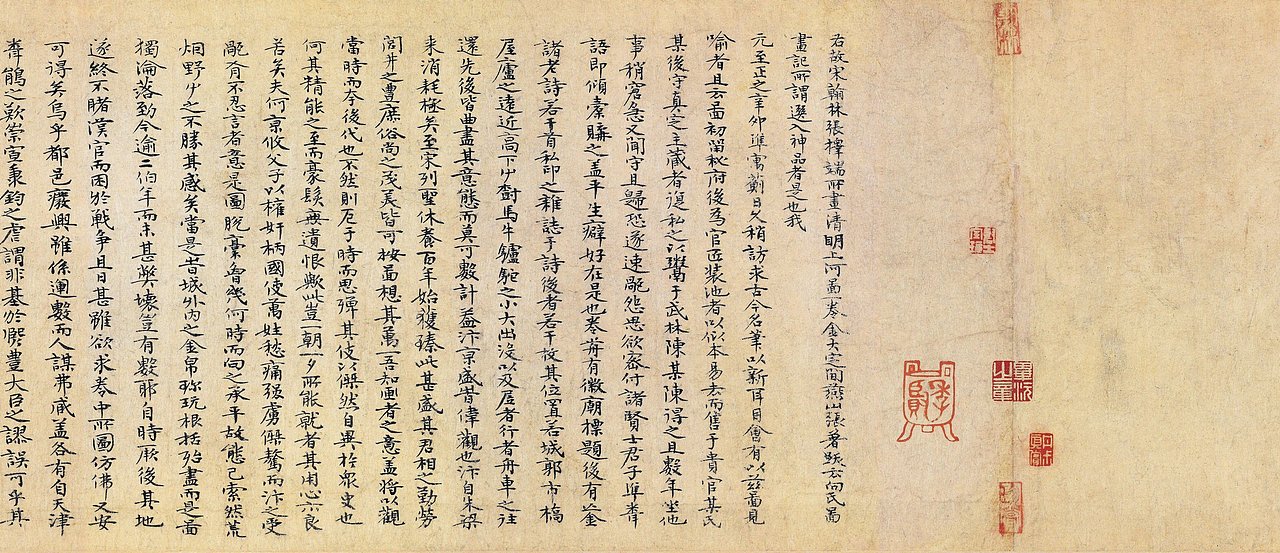 右故宋翰林張擇端所畫清明上河圖一卷金大定間燕山張著跋云向氏圖
畫記所謂選入神品者是也我
元至正之辛卯準寓薊日久稍訪求古今名筆以新耳目會有以茲圖見
喻者且云圖初留秘府後為官匠裝池者以似本易去而售于貴官某氏
某後守真定主藏者復私之以鬻于武林陳某陳得之且數年坐他
事稍窘急又聞守且歸恐遂速禍怨思欲密付諸賢士君子準
語即傾橐購之蓋平生癖好在是也卷前有徽廟標題後有亡金
諸老詩若干首私印之雜誌于詩後者若干枚其位置若城郭市橋
屋廬之遠近高下草樹馬牛驢駝之小大出沒以及居者行者舟車之往
還先後皆曲盡其意態而莫可數計蓋汴京盛昔偉觀也汴自朱梁
來消耗極矣至宋列聖休養百年始獲臻此甚盛其君相之勤勞
閭井之豐庶俗尚之茂美皆可按圖想其萬一吾知画者之意蓋將以觀
當時而夸後代也不然則厄于時而思殫其伎以傑然自異於衆史也
何其精能之至而豪髮無遺恨歟此豈一朝一夕所能就者其用心亦良
苦矣夫何京攸父子以權奸柄國使萬姓愁痛强虜桀驁而汴之受
禍有不忍言者意是圖脫稾曾幾何時而向之承平故態已索然荒
烟野草之不勝其感矣當是昔城外內之金帛珍玩根括殆盡而是圖
獨淪落到今逾二伯年而未甚弊壞豈有數耶自時厥後其地
遂終不睹漢官而困於戰爭且日甚雖欲求卷中所圖仿佛又安
可得矣烏乎都邑廢興雖係運數而人謀弗臧蓋各有自天津
鵑之歎崇宣秉鈞之虐謂非基於熙豐大臣之謬誤可乎其